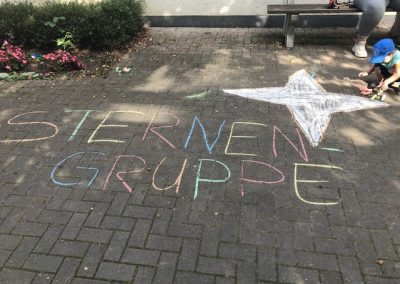 STERNEN-
GRUPPE